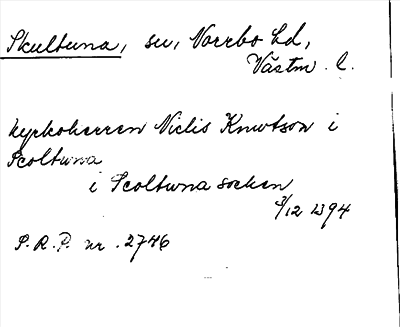 Skultuna, sn, Norrbo hd,
Västm. l.
kyrkoherren Niclis Knwtson i
Scoltwna
i Scoltwna socken
3/12 1394
S.R.P. nr. 2746